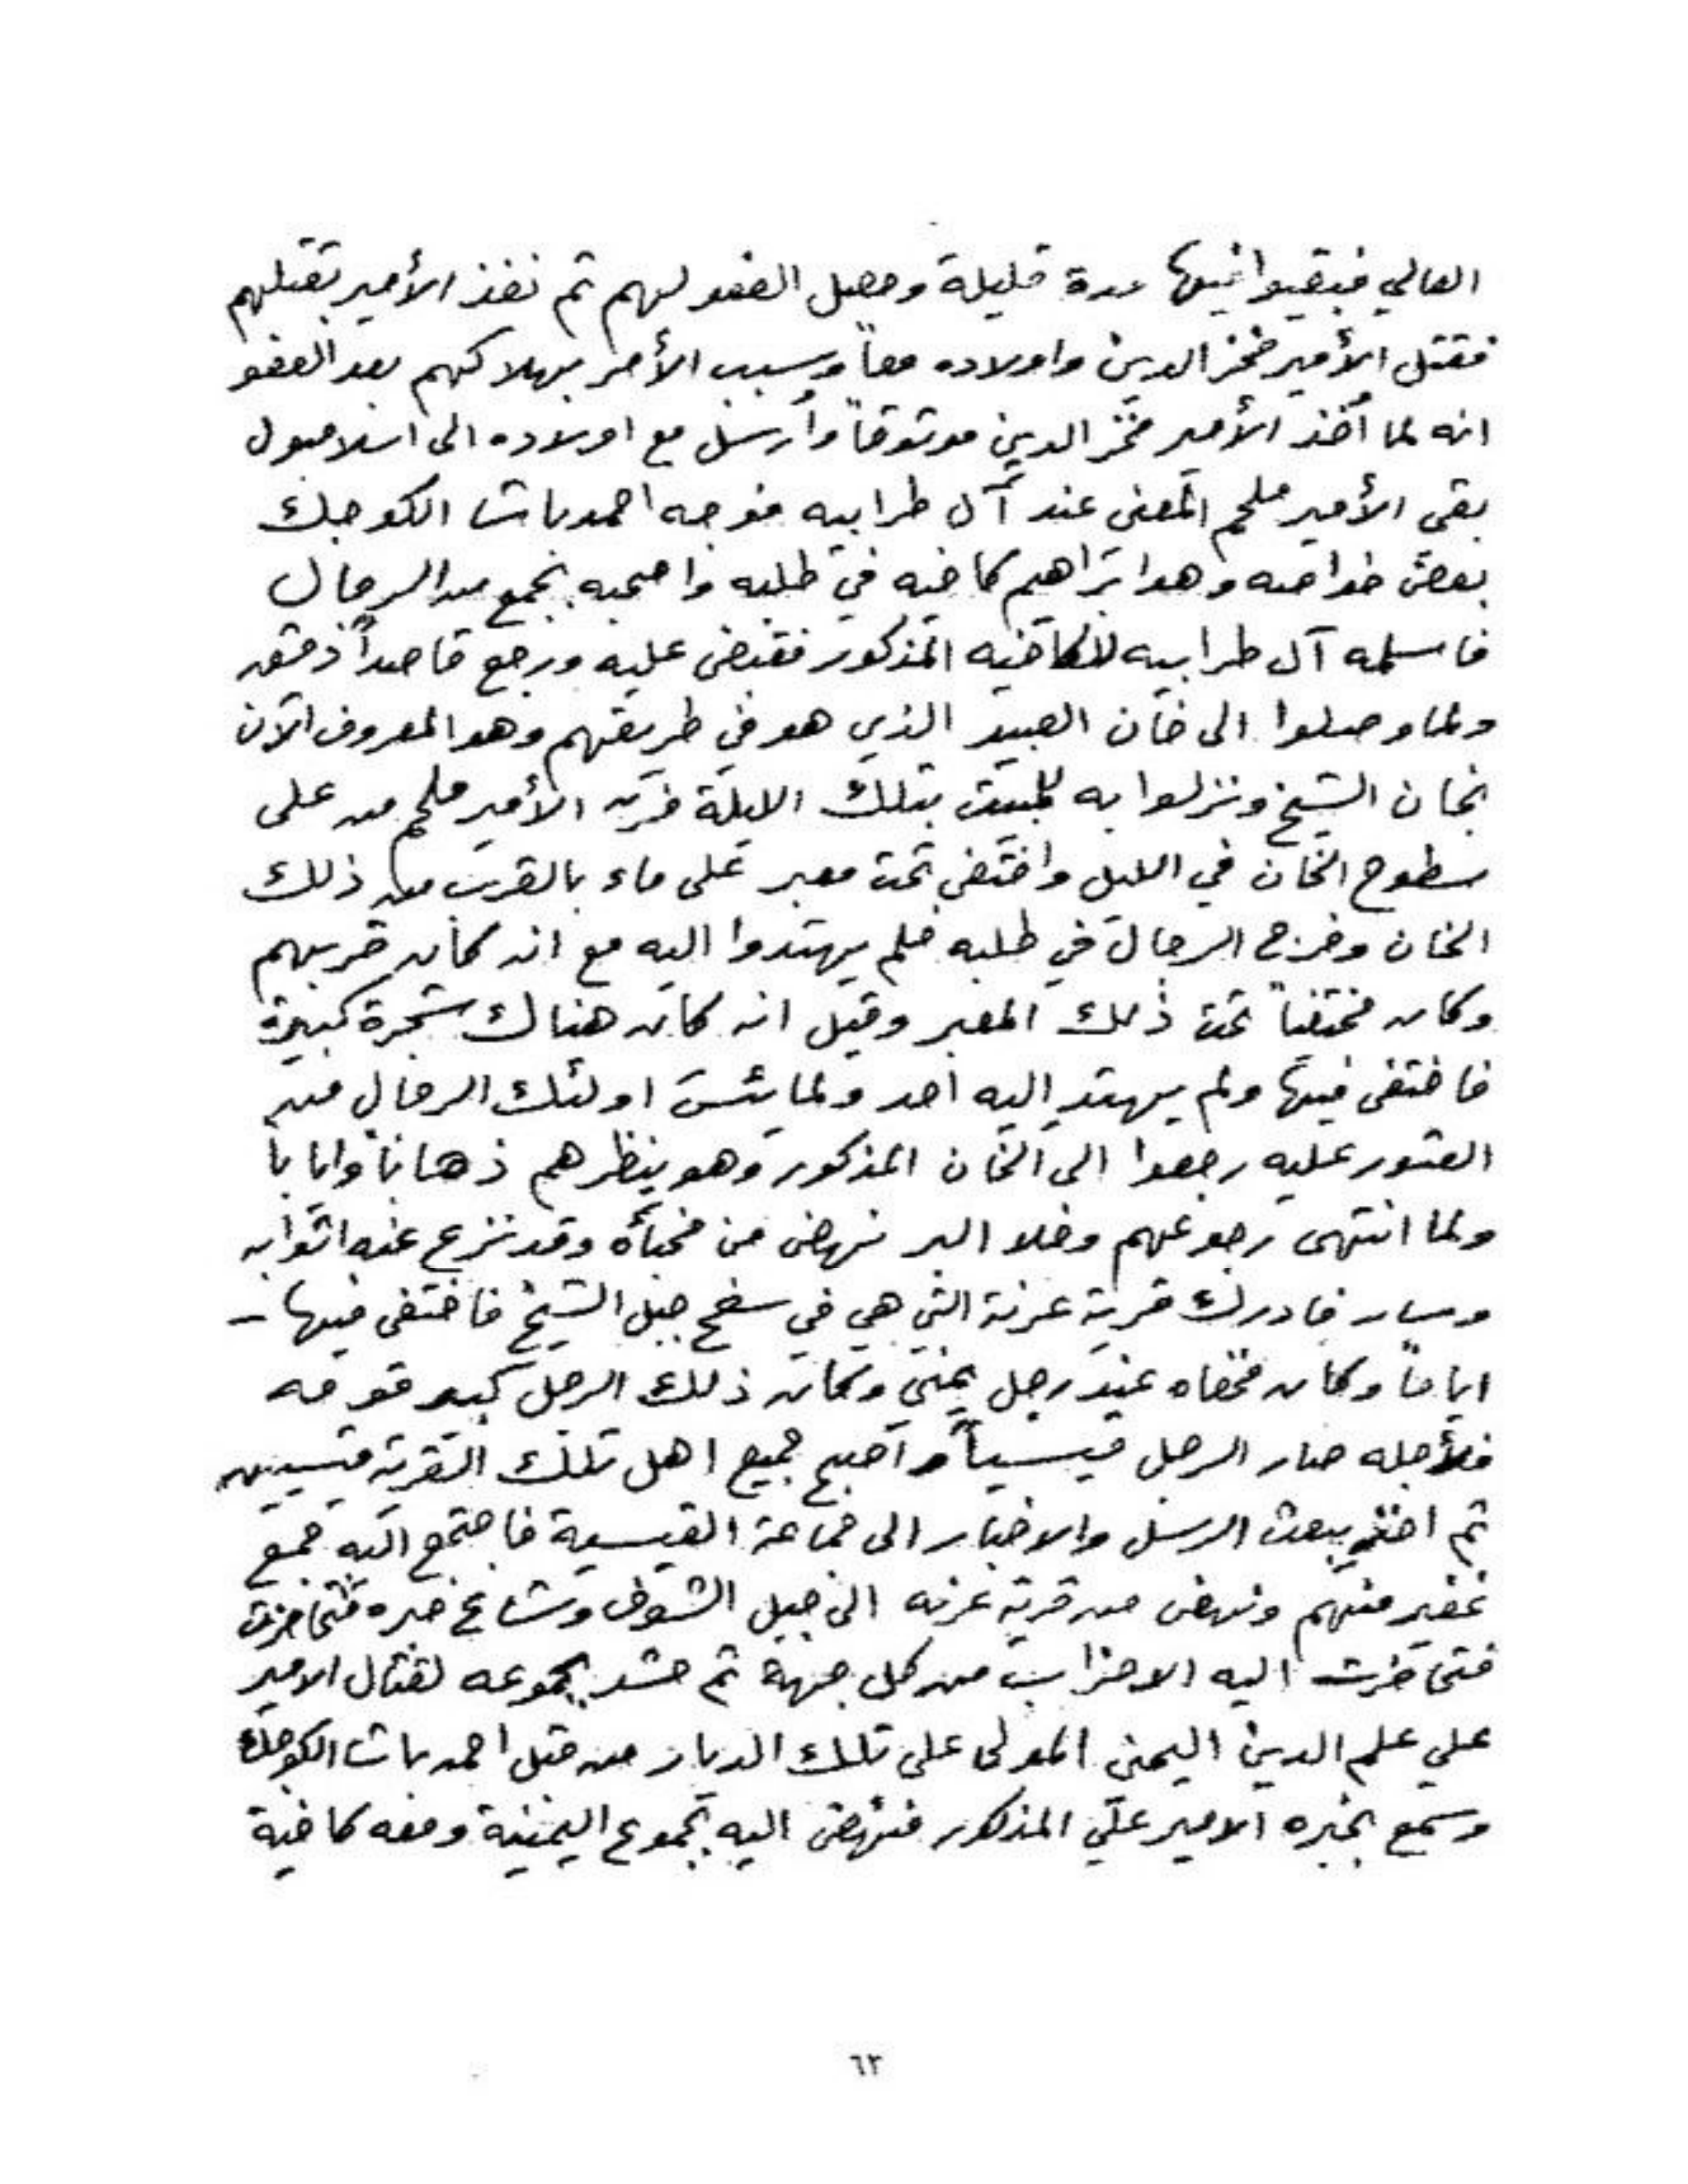 العالي فبقيوا فيها مدة قليلة وحصل العفو لهم ثم نفذ الأمير بقتلهم
فقتل الأمير فخر الدين واولاده معاً وسبب الأمر بهلاكهم بعد العفو
انه لما أخذ الأمير فخر الدين موثوقاً وأرسل مع اولاده الى اسلامبول
بقى الأمير ملحم المعنى عند آل طرابيه فوجه احمد باشا الكوجك
بعض خدامه وهو ابراهيم كاخيه في طلبه واصحبه بجمع من الرجال
فاسلمه آل طرابيه للكاخيه المذكور فقبض عليه ورجع قاصداً دمشق
ولما وصلوا الى خان العبيد الذي هو في طريقهم وهو المعروف الآن
بخان الشيخ ونزلوا به للمبيت بتلك الليلة فرّ الأمير ملحم من على
سطوح الخان في الليل واختفى تحت معبر على ماء بالقرب من ذلك
الخان وخرج الرجال في طلبه فلم يهتدوا اليه مع انه كان قربهم
وكان مختفياً تحت ذلك المعبر وقيل انه كان هناك شجرة كبيرة
فاختفى فيها ولم يهتد اليه احد ولما يئست اولئك الرجال من
العثور عليه رجعوا الى الخان المذكور وهو ينظرهم ذهاباً وايابا
ولما انتهى رجوعهم وخلا البر نهض من مخبأه وقد نزع عنه اثوابه
وسار فادرك قرية عرنة التي هي في سفح جبل الشيخ فاختفى فيها -
اياماً وكان مخفاه عند رجل يمني وكان ذلك الرجل كبير قومه
فلأجله صار الرجل قيسياً واصبح جميع اهل تلك القرية قيسيين
ثم اخذ يبعث الرسل والاخبار الى جماعة القيسية فاجتمع اليه جمع
غفير منهم ونهض من قرية عرنه الى جبل الشوف وشاع خبره فتحازبت
فتحازبت اليه الاحزاب من كل جهة ثم حشد بجموعه لقتال الامير
علي علم الدين اليمنى المولى على تلك الديار من قبل احمد باشا الكوجك
وسمع بخبره الامير علي المذكور فنهض اليه بجموع اليمنية ومعه كاخية
٦٢